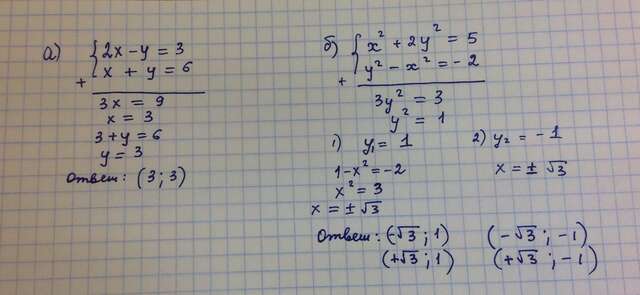 а) { 2x - y = 3
x + y = 6
+
3x = 9
x = 3
3 + y = 6
y = 3
Ответ: (3; 3)
б) { x² + 2y² = 5
y² - x² = -2
+
3y² = 3
y² = 1
1) y₁ = 1
1 - x² = -2
x² = 3
x = ± √3
2) y₂ = -1
x = ± √3
Ответ: (-√3; 1) (-√3; -1)
(+√3; 1) (+√3; -1)